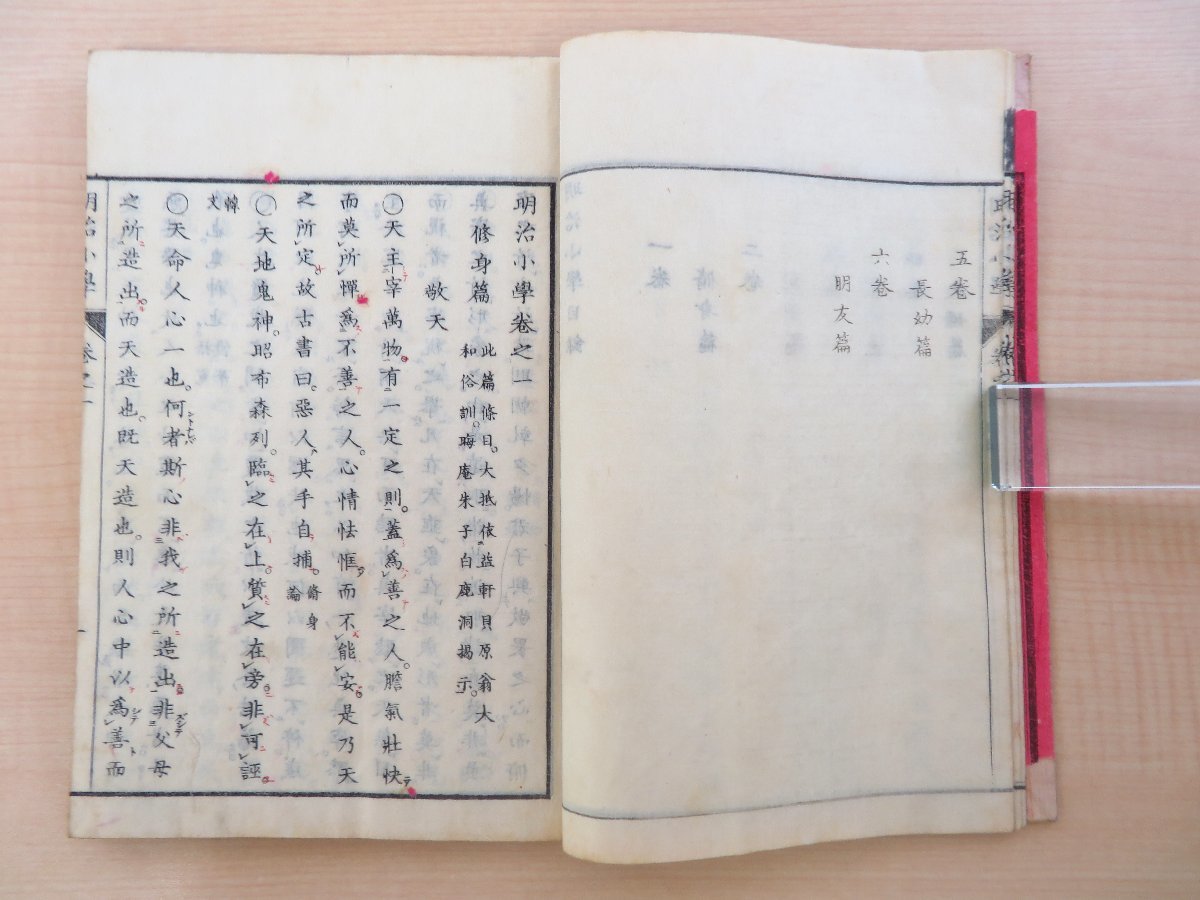 五卷
長幼篇
六卷
朋友篇
明治小學卷之一
修身篇 此篇條目。大抵依益軒貝原翁大
和俗訓。晦庵朱子白鹿洞揭示。
敬天
天主宰萬物。有一定之則。蓋爲善之人。膽氣壯快
而莫所憚。爲不善之人。心情怯恇而不能安。是乃天
之所定。故古書曰。惡人其手自捕。脩身
論
天地鬼神。昭布森列。臨之在上。質之在旁。非可誣。
韓
文
天命人心一也。何者斯心非我之所造出。非父母
之所造出。而天造也。既天造也。則人心中以爲善而
明治小學 卷之一 一